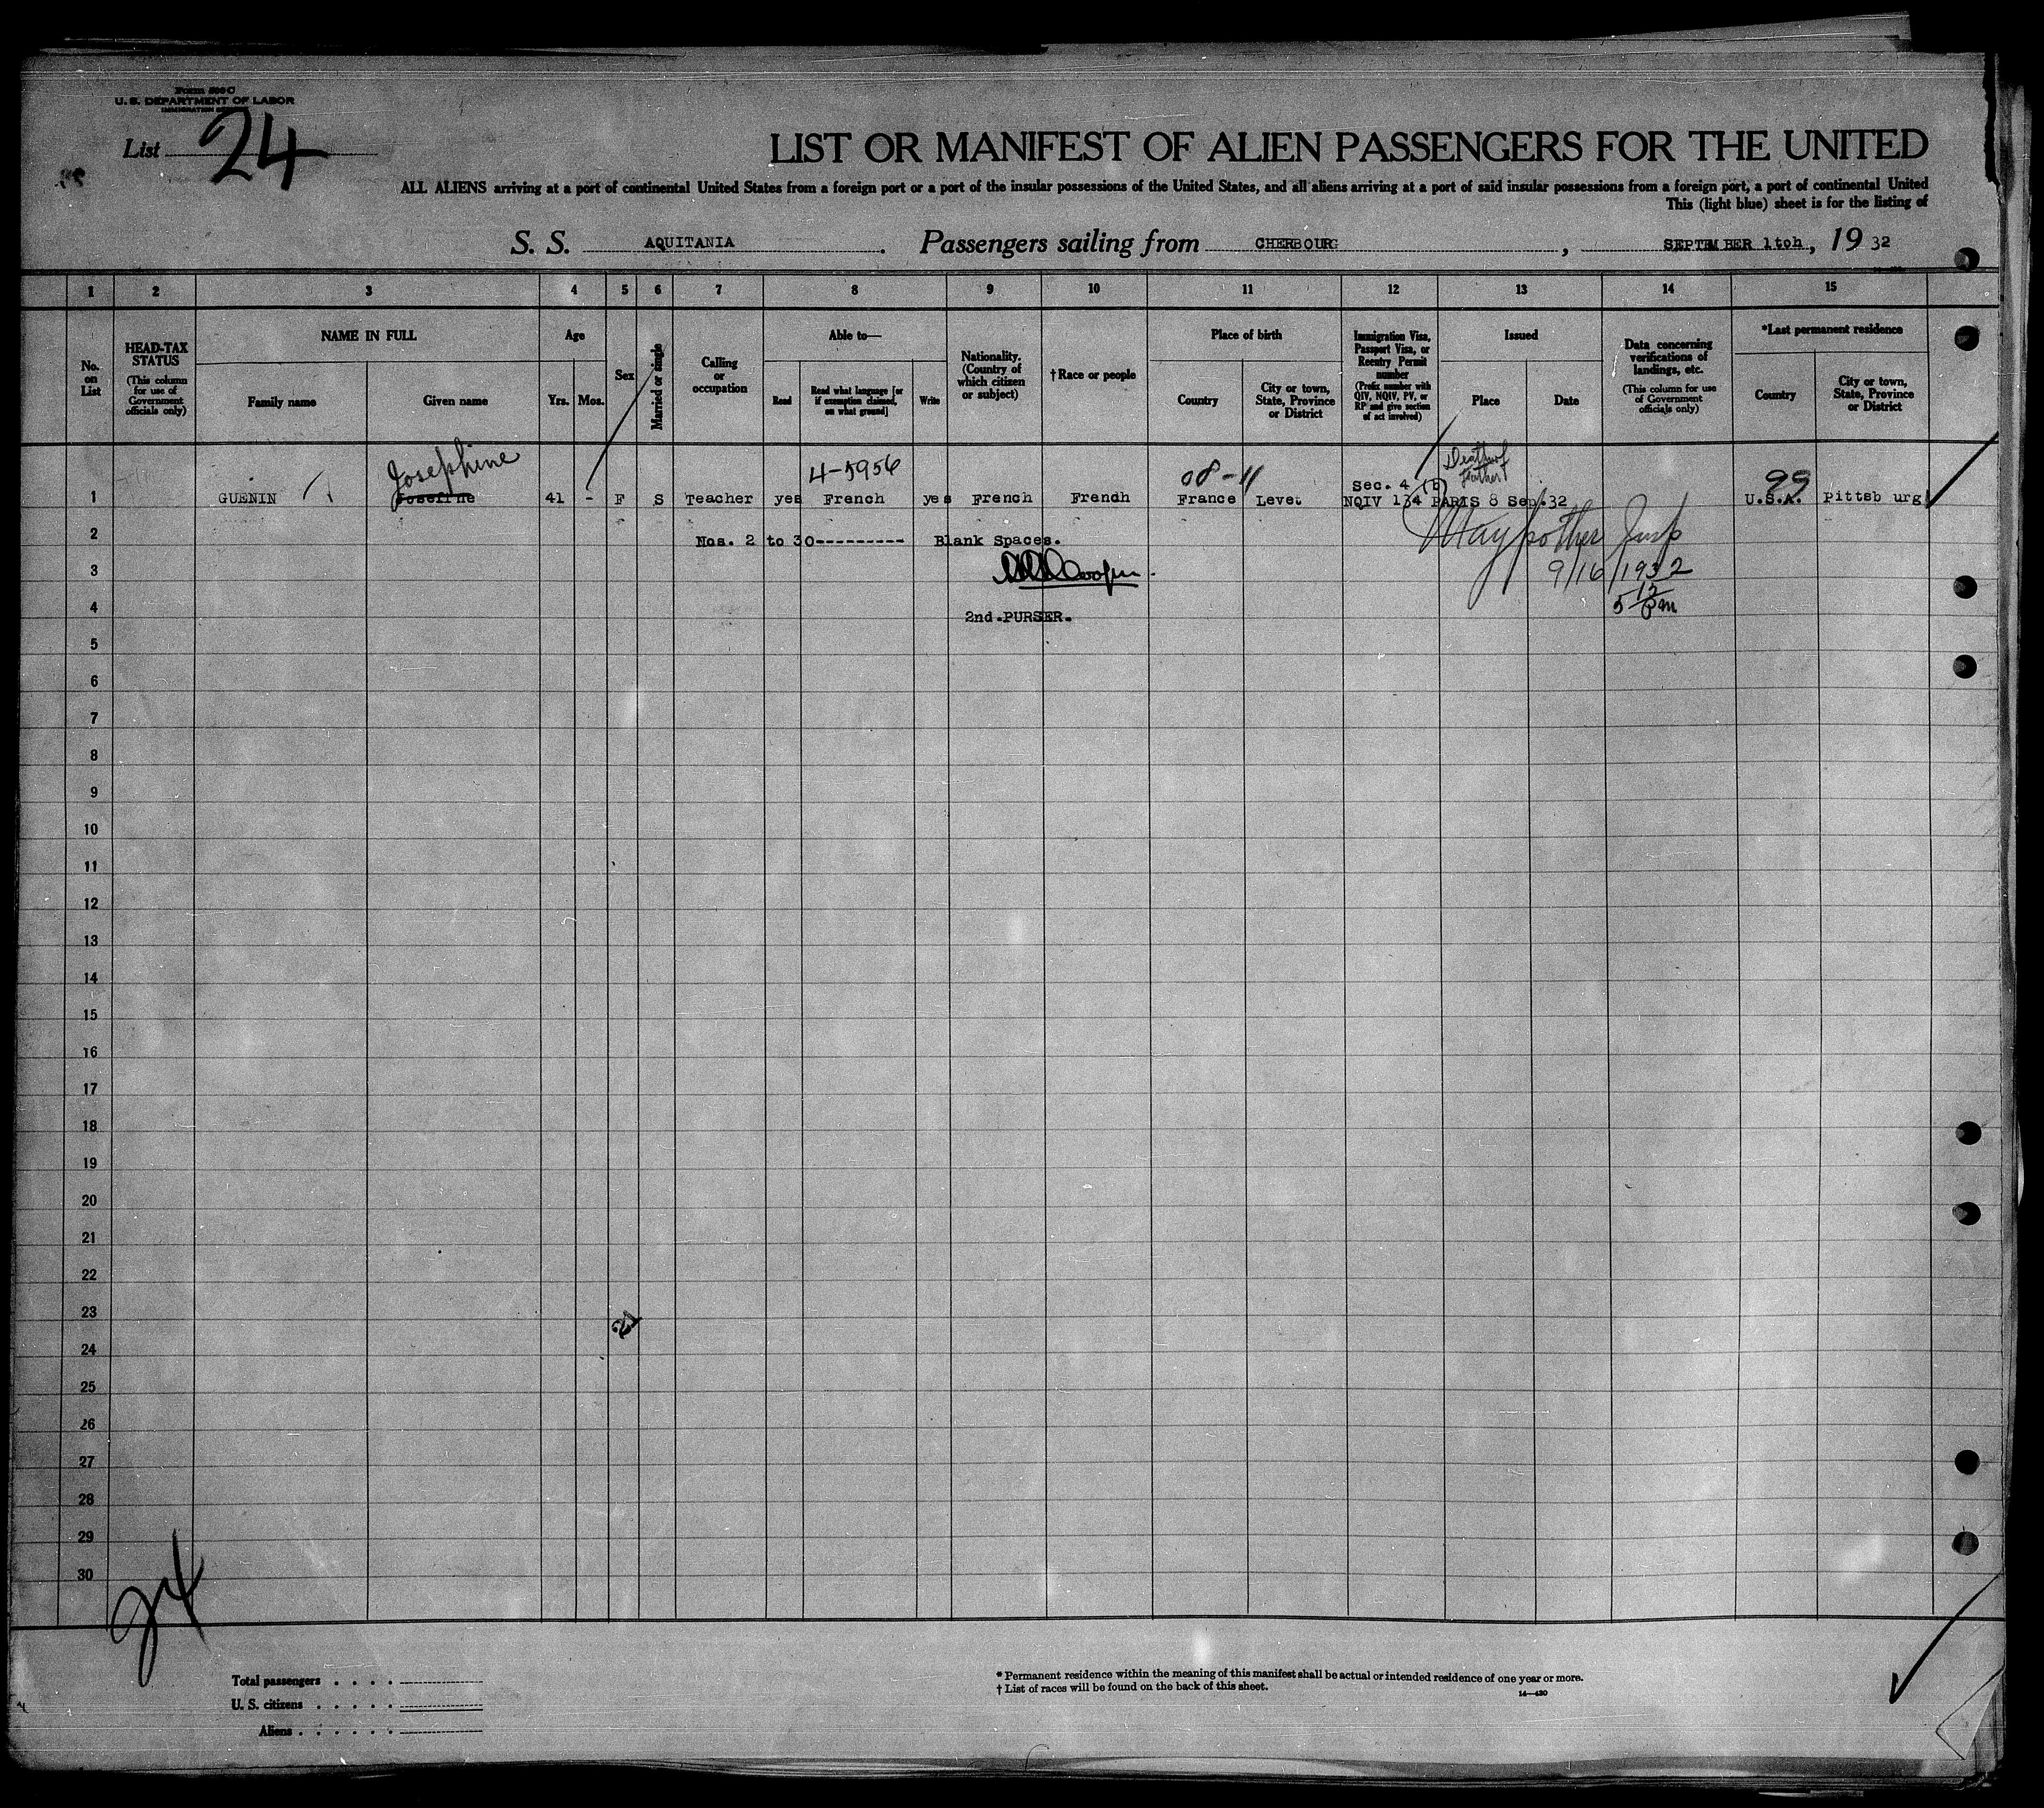 Form 500 C
U. S. DEPARTMENT OF LABOR
IMMIGRATION
List 24
LIST OR MANIFEST OF ALIEN PASSENGERS FOR THE UNITED
ALL ALIENS arriving at a port of continental United States from a foreign port or a port of the insular possessions of the United States, and all aliens arriving at a port of said insular possessions from a foreign port, a port of continental United
This (light blue) sheet is for the listing of
S. S. AQUITANIA. Passengers sailing from CHERBOURG, SEPTEMBER 1toh, 19 32
1 2 3 4 5 6 7 8 9 10 11 12 13 14 15
No. on List
HEAD-TAX STATUS
(This column for use of Government officials only)
NAME IN FULL
Family name
Given name
Age
Yrs. Mos.
Sex
Married or single
Calling or occupation
Able to—
Read
Read what language [or if exemption claimed, on what ground]
Write
Nationality. (Country of which citizen or subject)
†Race or people
Place of birth
Country
City or town, State, Province or District
Immigration Visa, Passport Visa, or Reentry Permit number
(Prefix number with QIV, NQIV, PV, or RP and give section of act involved)
Issued
Place
Date
Data concerning verifications of landings, etc.
(This column for use of Government officials only)
*Last permanent residence
Country
City or town, State, Province or District
Josephine 4-5956 08-11 Death of Father 99
Sec. 4 (b)
1 GUENIN Josefine 41 - F S Teacher yes French yes French Frendh France Levet NQIV 134 PARIS 8 Sep.32 U.S.A. Pittsb urg
2 Nos. 2 to 30--------- Blank Spaces.
3 Cooper. 9/16/1932
4 5 12 pm
2nd.PURSER.
5
6
7
8
9
10
11
12
13
14
15
16
17
18
19
20
21
22
23 21
24
25
26
27
28
29
30
24
Total passengers
U. S. citizens
Aliens
* Permanent residence within the meaning of this manifest shall be actual or intended residence of one year or more.
† List of races will be found on the back of this sheet.
14—430